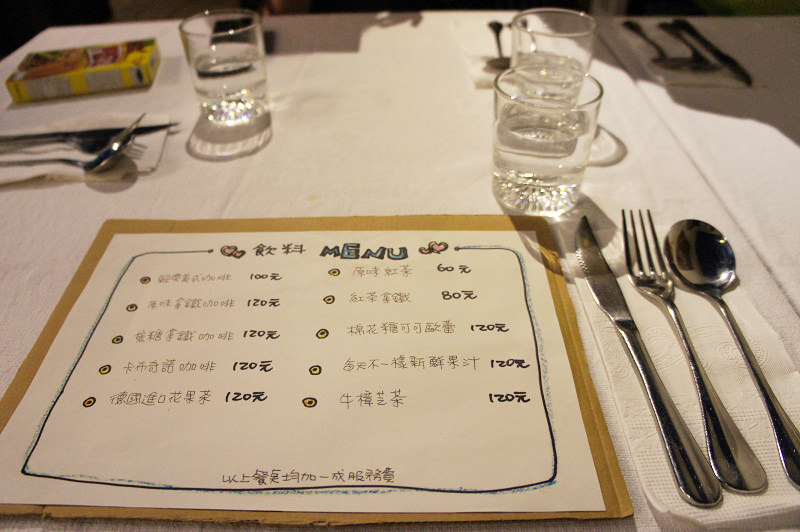 飲料 MENU
經典美式咖啡 100元
原味拿鐵咖啡 120元
焦糖拿鐵咖啡 120元
卡布奇諾咖啡 120元
德國進口花果茶 120元
原味紅茶 60元
紅茶拿鐵 80元
棉花糖可可歐蕾 120元
每天不一樣新鮮果汁 120元
牛樟芝茶 120元
以上餐点均加一成服務費